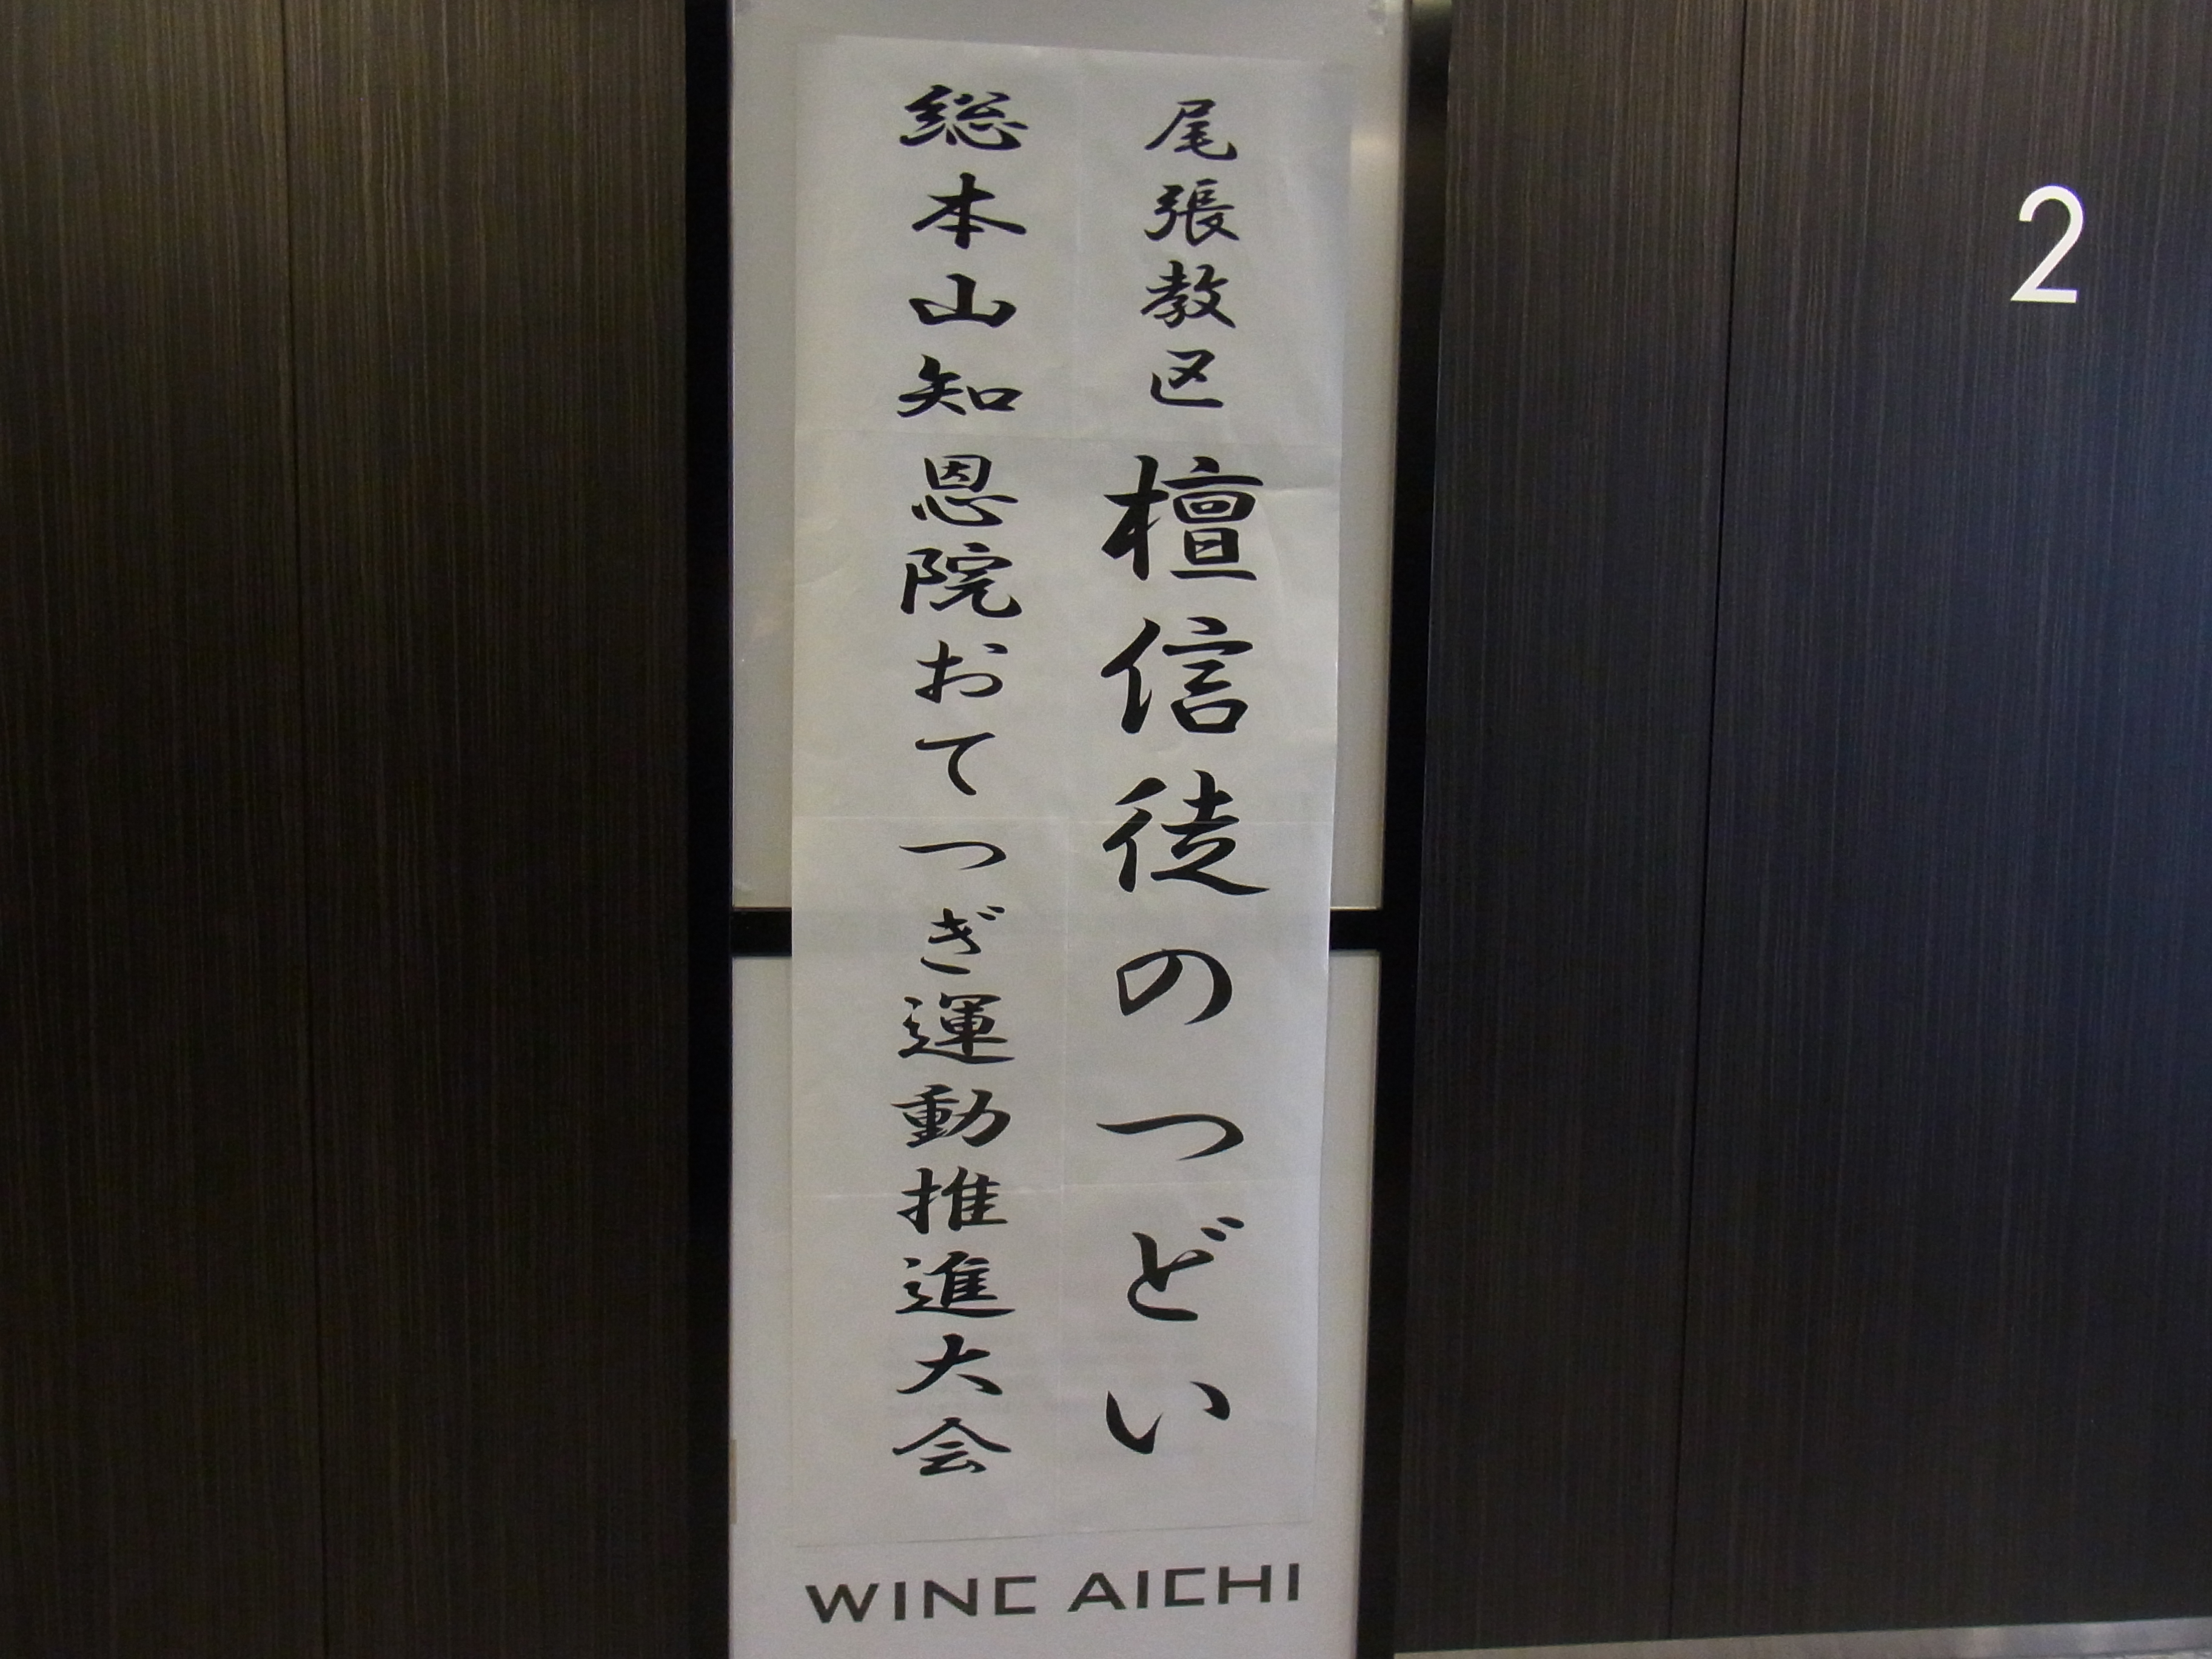 尾張教区 檀信徒のつどい
総本山知恩院おてつぎ運動推進大会
WINC AICHI
2